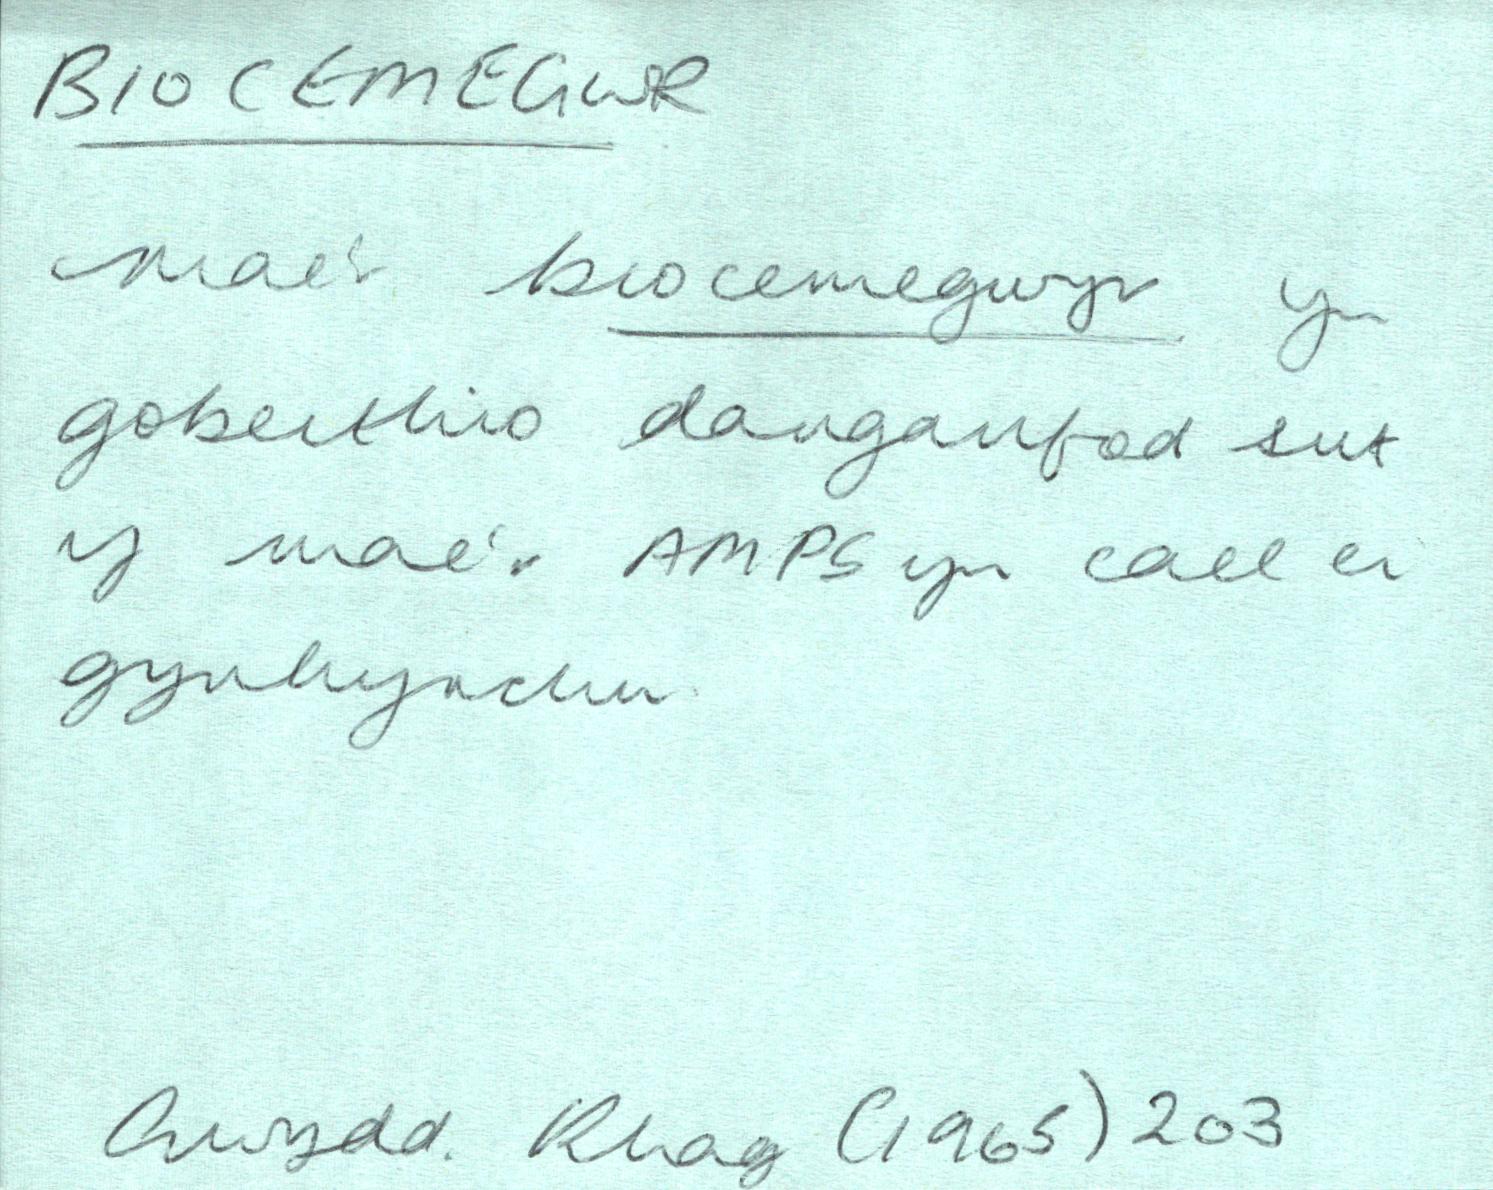 BIOCEMEGWR
mae'r biocemegwyr yn
gobeithio darganfod sut
y mae'r AMPS yn cael ei
gynhyrchu
Gwydd. Rhag (1965) 203